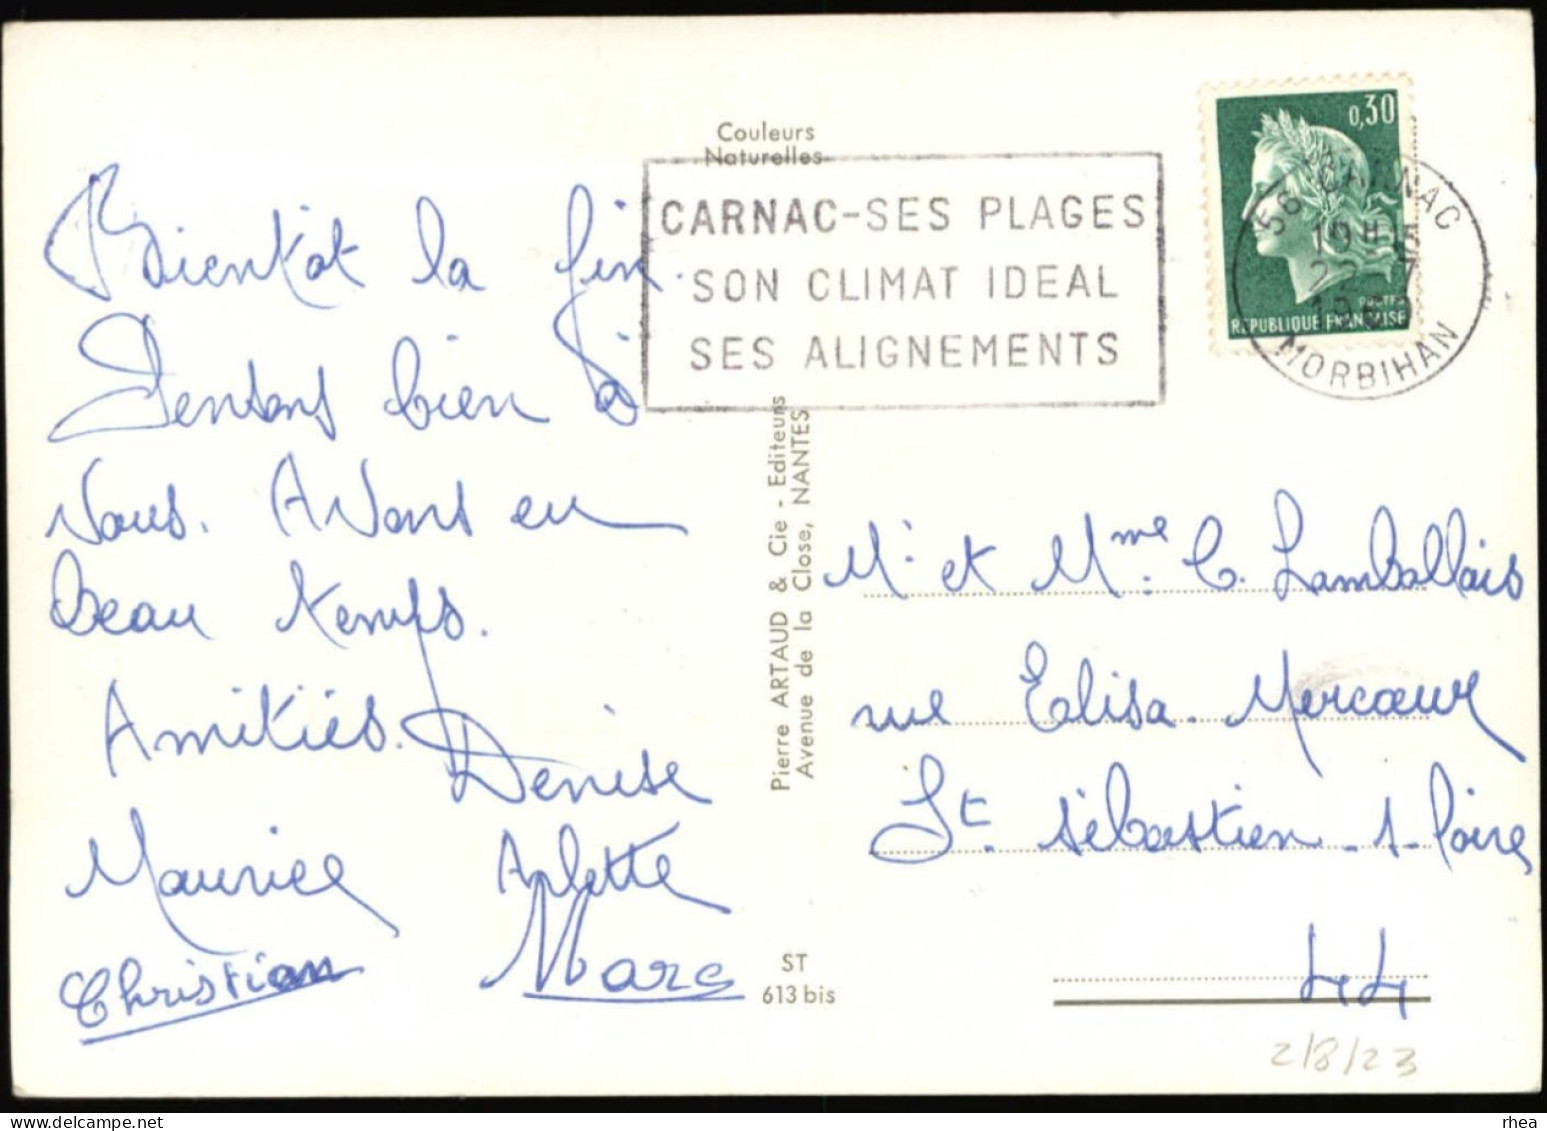 Bientot la fin.
Pensons bien à
vous. Avons eu
beau temps.
Amitiés. Denise
Maurice Arlette
Christian Marc
Couleurs
Naturelles
CARNAC-SES PLAGES
SON CLIMAT IDEAL
SES ALIGNEMENTS
0,30
POSTES
REPUBLIQUE FRANÇAISE
56 CARNAC
MORBIHAN
Pierre ARTAUD & Cie - Editeurs
Avenue de la Close, NANTES
ST
613 bis
Mr et Mme. C. Lamballais
rue Elisa Mercoeur
St. Sébastien-s-Loire
44
2/8/23
rhea